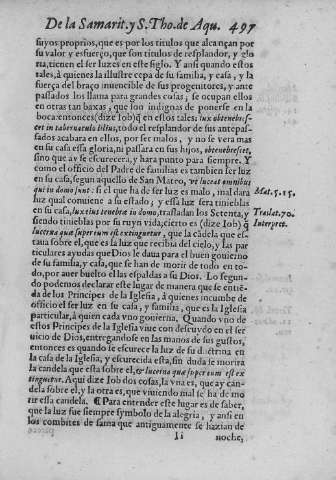 De la Samarit. y S. Tho. de Aqu. 497
suyos proprios, que es por los titulos que alcançan por
su valor y esfuerço, que son titulos de resplandor, y glo
ria, tienen el ser luzes en este siglo. Y ansi quando estos
tales, à quienes la illustre cepa de su familia, y casa, y la
fuerça del braço inuencible de sus progenitores, y ante
passados llama para grandes cosas, se ocupan ellos
en otras tan baxas, que son indignas de ponerse en la
boca: entonces (dize Iob) en estos tales: lux obtenebres-
cet in tabernaculo illius, todo el resplandor de sus antepas-
sados acabara en ellos, por ser malos, y no se vera mas
en su casa essa gloria, ni passara en sus hijos, obtenebrescet,
sino que a se escurecera, y hara punto para siempre. Y
como el officio del Padre de familias es tambien ser luz
en su casa, segun aquello de San Mateo, vt luceat omnibus
qui in domo sunt: si el que ha de ser luz es malo, mal dara
luz qual conuiene a su estado, y essa luz sera tinieblas
en su casa, lux eius tenebræ in domo, trasladan los Setenta, y
siendo tinieblas por su ruyn vida, cierto es (dize Iob)
lucerna quæ super eum est extinguetur, que la cãdela que es-
taua sobre el, que es la luz que recibia del cielo, y las par
ticulares ayudas que Dios le daua para el buen gouierno
de su familia, y casa, que se han de morir de todo en to-
do, por auer buelto el las espaldas a su Dios. Lo segun-
do podemos declarar este lugar de manera que se entiẽ-
da de los Principes de la Iglesia, à quienes incumbe de
officio el ser luz en su casa, y familia, que es la Iglesia
particular, à quien cada vno gouierna. Quando vno de
estos Principes de la Iglesia viue con descuydo en el ser
uicio de Dios, entregandose en las manos de sus gustos,
entonces es quando se escurece la luz de su doctrina en
la casa de la Iglesia, y escurecida esta, sin duda se morira
la candela que esta sobre el, & lucerna quæ super eum est ex
tinguetur. Aqui dize Iob dos cosas, la vna es, que ay can-
dela sobre el, y la otra es, que viuiendo mal se ha de mo
rir essa candela. ¶ Para entender este lugar es de saber,
que la luz fue siempre symbolo de la alegria, y ansi en
los combites de fama que antiguamente se hazian de
Ii noche,
Mat. 5. 15.
Traslat. 70.
Interpret.